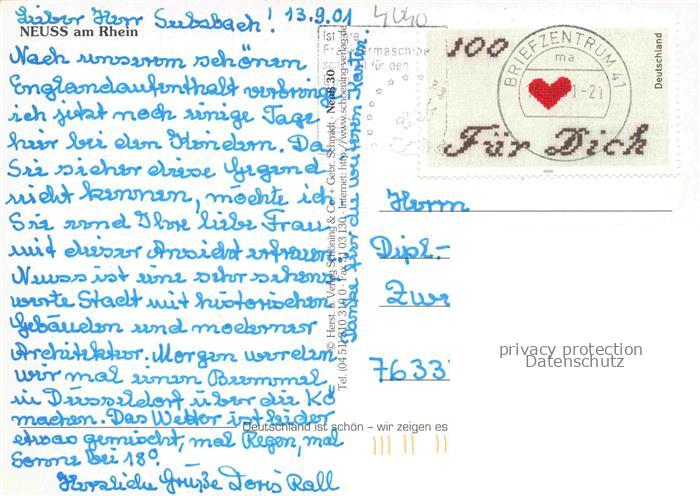 Lieber Herr Seebsbach! 13.9.01
4040
NEUSS am Rhein
Nach unserem schönen
Englandaufenthalt verbringe
ich jetzt noch einige Tage
hier bei den Kindern. Da
Sie sicher diese Gegend
nicht kennen, möchte ich
Sie und Ihre liebe Frau
mit dieser Ansicht erfreuen.
Neuss ist eine sehr sehens-
werte Stadt mit historischen
Gebäuden und moderner
Architektur. Morgen werden
wir mal einen Bummel
in Düsseldorf über die Kö
machen. Das Wetter ist leider
etwas gemischt, mal Regen, mal
Sonne bei 18°.
Herzliche Grüße Doris Rall
Danke für die Karten.
Neuß 30
© Herst. u. Verlag Schöning & Co. + Gebr. Schmidt
Internet: http://www.schoening-verlag.de
Ist Ihre
für den
BRIEFZENTRUM 41
ma
-21
100
Für Dich
Deutschland
2000
Herrn
Dipl.-
Zwi
7633
privacy protection
Datenschutz
Deutschland ist schön – wir zeigen es